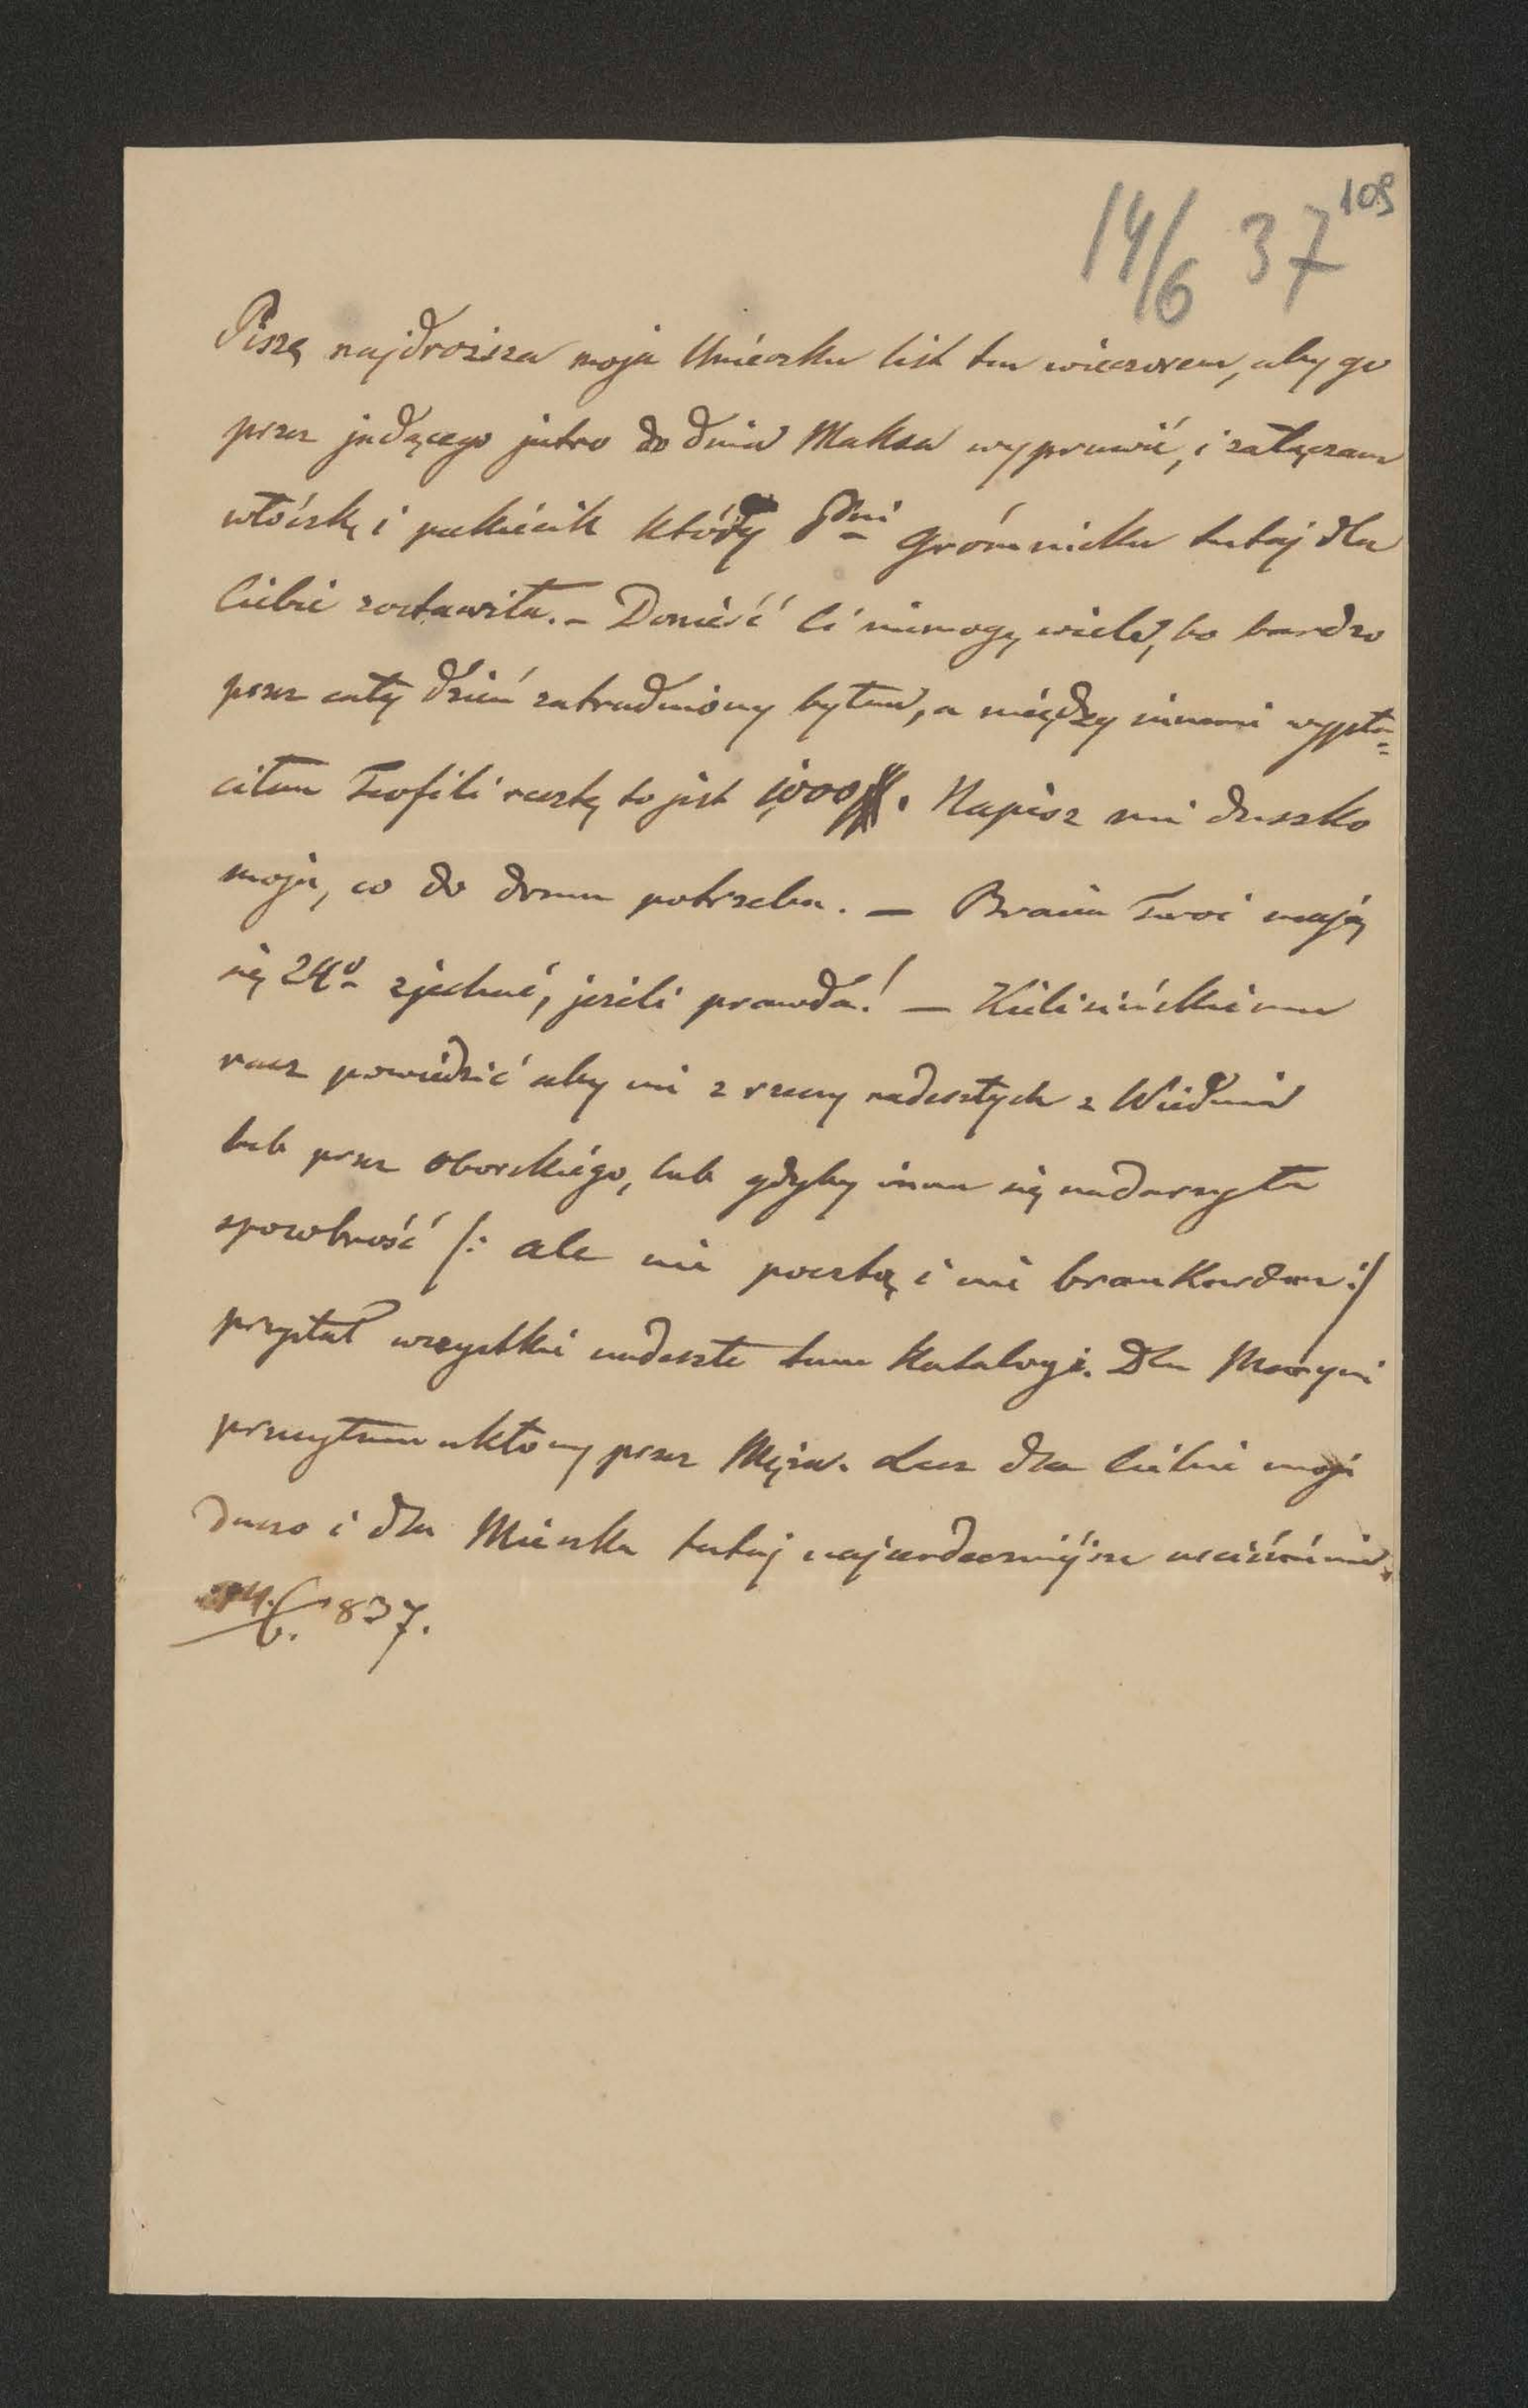 109
14/6 37
Piszę najdroższa moja Unieczko list ten wieczorem, aby go
przez jadącego jutro do dnia Maksa wyprawić, i załączam
włóczkę i pakiécik który Pani Gromnicka tutaj dla
Ciebie zostawiła. – Donieść Ci niemogę wiele, bo bardzo
przez cały dzień zatrudniony byłem, a między innemi wypła=
ciłem Teofili resztę to jest 1000 #. Napisz mi duszko
moja, co do domu potrzeba. — Bracia Twoi mają
się 24o zjechać, jeżeli prawda! — Kielisińskiemu
racz powiedzieć aby mi z rzeczy nadeszłych z Wiednia
lub przez Oborskiégo, lub gdyby inna się nadarzyła
sposobność /: ale nie pocztą i nie brankardem :/
przysłał wszystkie nadeszłe tam Katalogi. Dla Maryni
przesyłam ukłony przez Męża. Lecz dla Ciebie moja
duszo i dla Miecka tutaj najserdeczniéjsze uściśnienie.
14./6. 837.